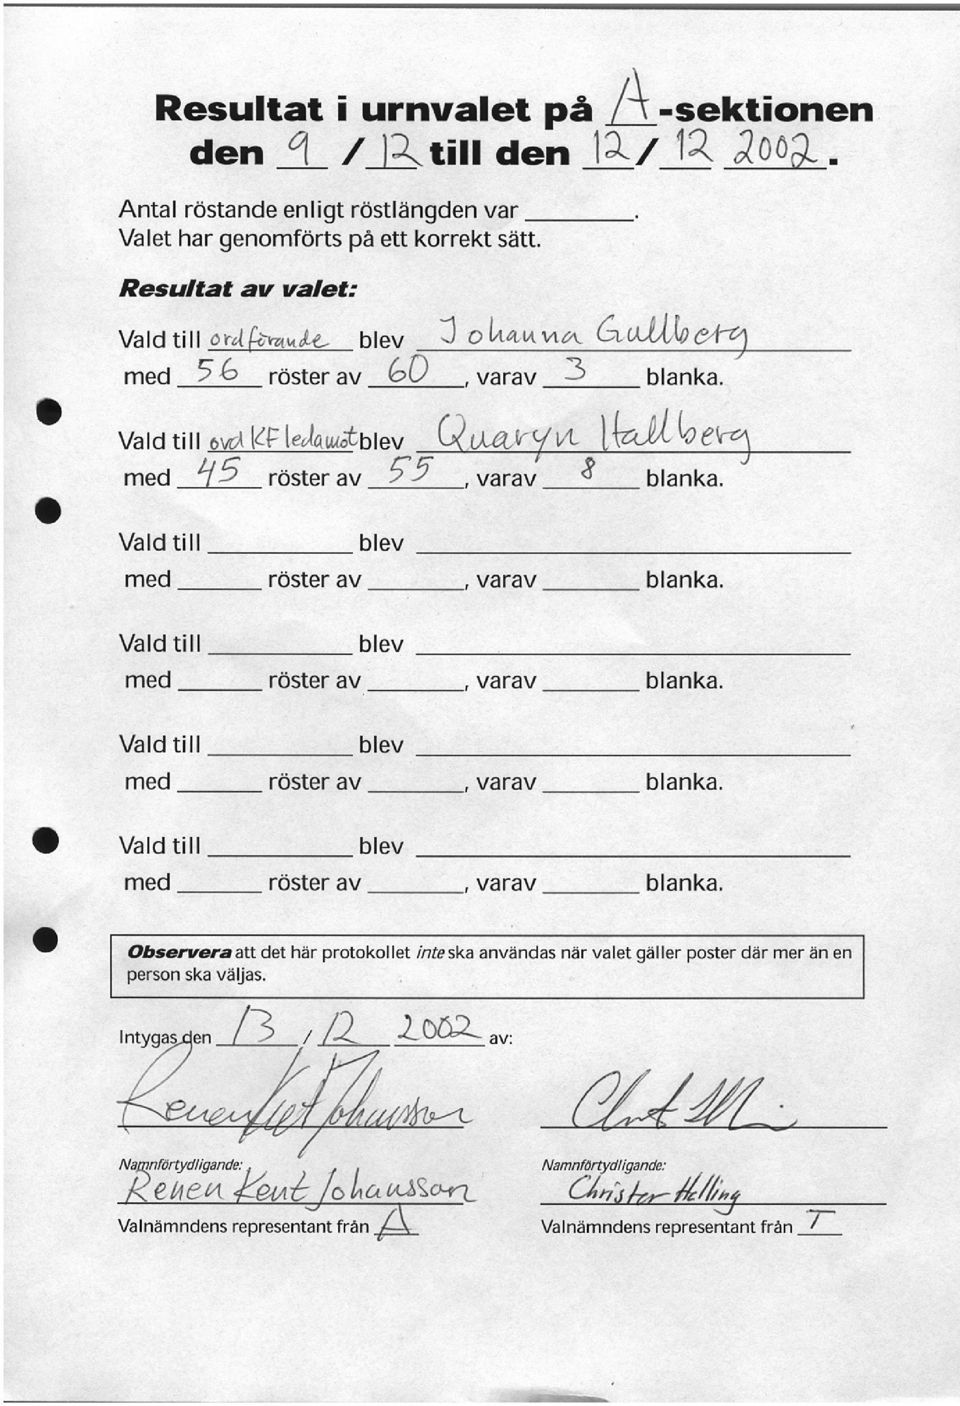 Resultat i urnvalet på A-sektionen
den 9 / 12 till den 12 / 12 2002.
Antal röstande enligt röstlängden var ________.
Valet har genomförts på ett korrekt sätt.
Resultat av valet:
Vald till ordförande blev Johanna Gullberg
med 56 röster av 60, varav 3 blanka.
Vald till ord KF ledamot blev Quaryn Hallberg
med 45 röster av 55, varav 8 blanka.
Vald till ________ blev ________
med ________ röster av ________, varav ________ blanka.
Vald till ________ blev ________
med ________ röster av ________, varav ________ blanka.
Vald till ________ blev ________
med ________ röster av ________, varav ________ blanka.
Vald till ________ blev ________
med ________ röster av ________, varav ________ blanka.
Observera att det här protokollet inte ska användas när valet gäller poster där mer än en
person ska väljas.
Intygas den 13 / 12 2002 av:
Renen Kent Johansson
Namnförtydligande: Namnförtydligande:
Renen Kent Johansson Christer Helling
Valnämndens representant från A Valnämndens representant från T